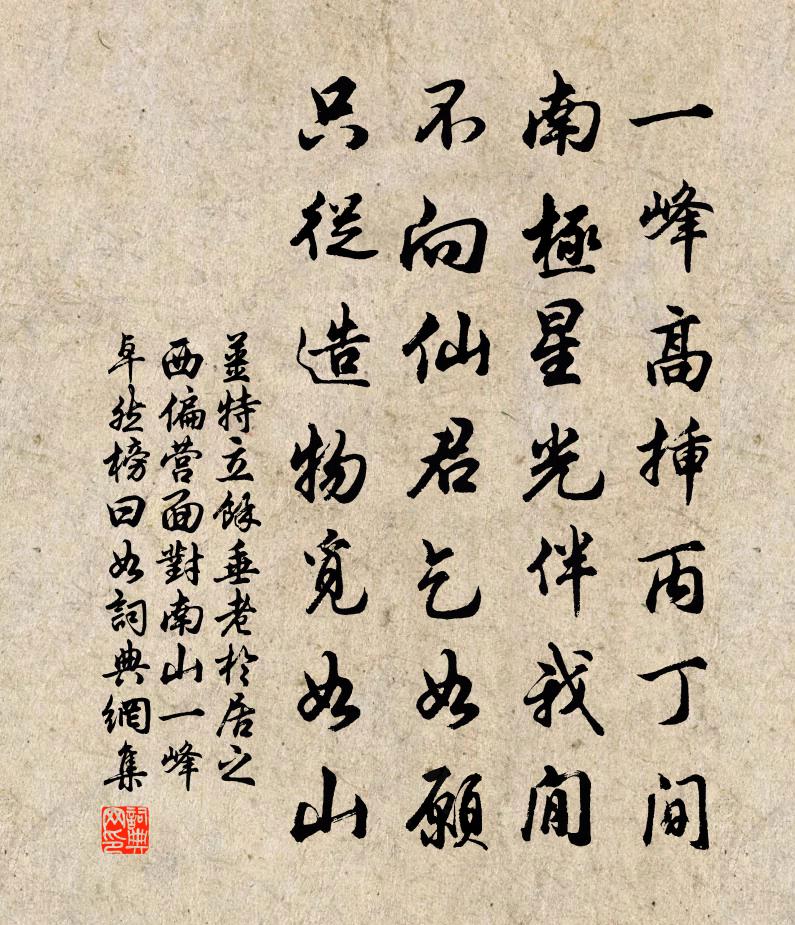 一峰高插丙丁間
南極星光伴我閒
不向仙君乞如願
只從造物覓如山
姜特立餘垂老於居之
西偏營面對南山一峰
卓然榜曰如詞典網集
詞典網印